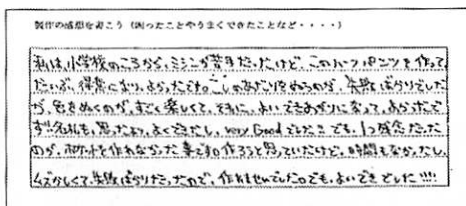 製作の感想を書こう（困ったことやうまくできたことなど・・・・）
私は、小学校のころから、ミシンが苦手だったけど、このハーフパンツを作って
だいぶ、得意になり、よかったです。こしのあたりをぬうのが、失敗ばりでした
が、色をぬるのが、すごく楽しくて、それに、よいできあがりになって、よかったで
す。名札も、思ったより、よくできたし、very Goodでした。でも、1つ残念だった
のが、ポケットを作れなかった事です。作ろうと思っていたけど、時間もなかったし、
ムズかしくて、失敗ばりだったので、作れませんでした。でも、よいできでした!!!